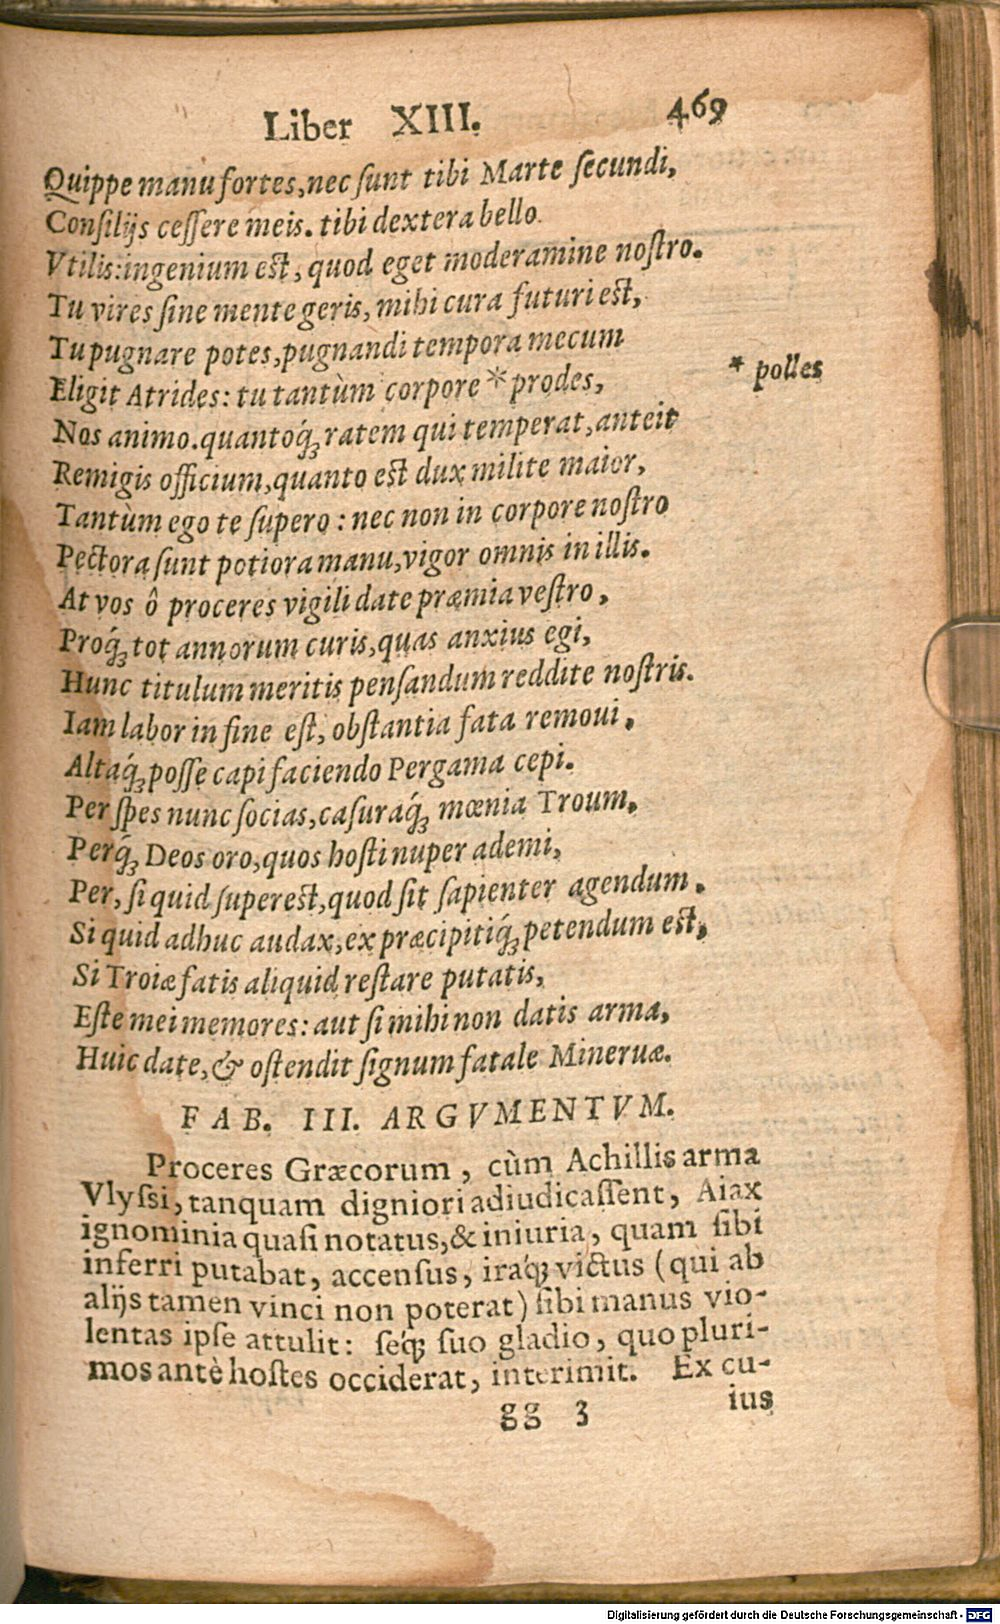 Liber XIII. 469
Quippe manu fortes, nec sunt tibi Marte secundi,
Consilijs cessere meis. tibi dextera bello
Vtilis: ingenium est, quod eget moderamine nostro.
Tu vires sine mente geris, mihi cura futuri est,
Tu pugnare potes, pugnandi tempora mecum
Eligit Atrides: tu tantùm corpore * prodes,
* polles
Nos animo. quantoq́; ratem qui temperat, anteit
Remigis officium, quanto est dux milite maior,
Tantùm ego te supero: nec non in corpore nostro
Pectora sunt potiora manu, vigor omnis in illis.
At vos ô proceres vigili date præmia vestro,
Proq́; tot annorum curis, quas anxius egi,
Hunc titulum meritis pensandum reddite nostris.
Iam labor in fine est, obstantia fata remoui,
Altaq́; posse capi faciendo Pergama cepi.
Per spes nunc socias, casuraq́; mœnia Troum,
Perq́; Deos oro, quos hosti nuper ademi,
Per, si quid superest, quod sit sapienter agendum.
Si quid adhuc audax, ex præcipitiq́; petendum est,
Si Troiæ fatis aliquid restare putatis,
Este mei memores: aut si mihi non datis arma,
Huic date, & ostendit signum fatale Mineruæ.
FAB. III. ARGVMENTVM.
Proceres Græcorum, cùm Achillis arma
Vlyssi, tanquam digniori adiudicassent, Aiax
ignominia quasi notatus, & iniuria, quam sibi
inferri putabat, accensus, iraq́; victus (qui ab
alijs tamen vinci non poterat) sibi manus vio-
lentas ipse attulit: seq́; suo gladio, quo pluri-
mos antè hostes occiderat, interimit. Ex cu-
gg 3 ius
Digitalisierung gefördert durch die Deutsche Forschungsgemeinschaft - DFG